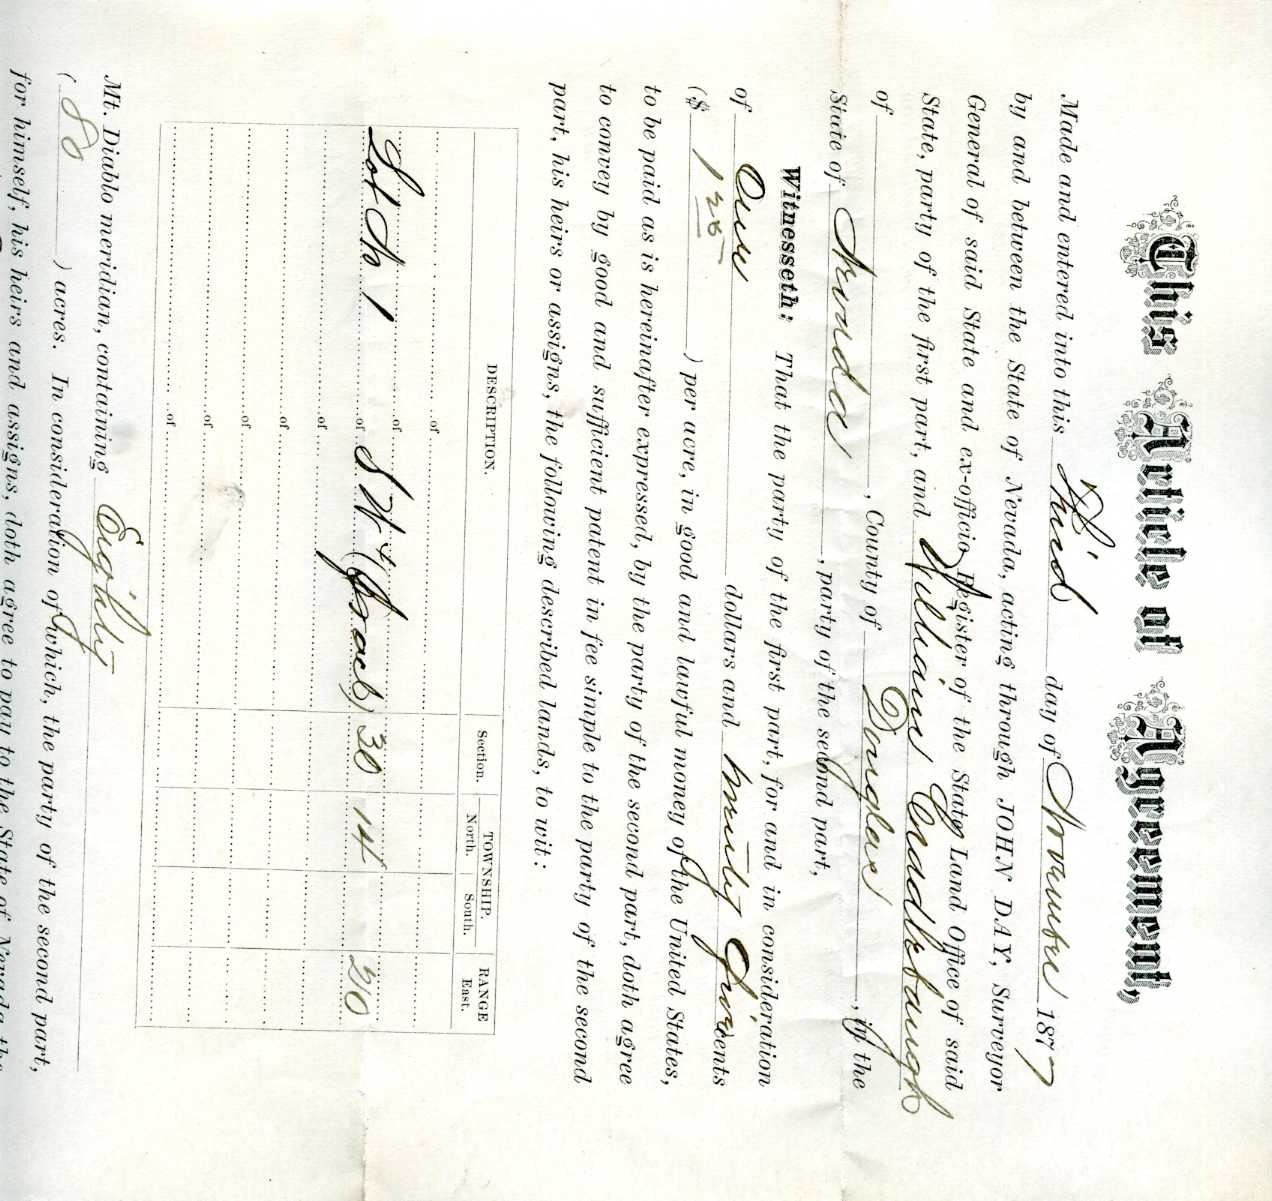 This Article of Agreement,
Made and entered into this Third day of November 1877
by and between the State of Nevada, acting through JOHN DAY, Surveyor
General of said State and ex-officio Register of the State Land Office of said
State, party of the first part, and William Cradlebaugh
of , County of Douglas , in the
State of Nevada , party of the second part,
Witnesseth: That the party of the first part, for and in consideration
of One dollars and twenty five cents
($ 1 25 ) per acre, in good and lawful money of the United States,
to be paid as is hereinafter expressed, by the party of the second part, doth agree
to convey by good and sufficient patent in fee simple to the party of the second
part, his heirs or assigns, the following described lands, to wit:
DESCRIPTION. Section. TOWNSHIP. RANGE
North. South. East.
of
of
Lot No 1 of S W 4 (frac'l) 30 14 20
of
of
of
of
of
Mt. Diablo meridian, containing Eighty
( 80 ) acres. In consideration of which, the party of the second part,
for himself, his heirs and assigns, doth agree to pay to the State of Nevada the